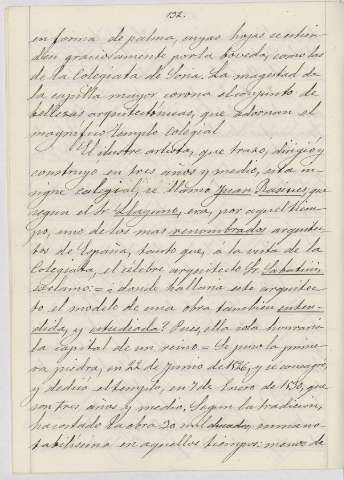 132.
en forma de palma, cuyas hojas se extien-
den graciosamente por la bóveda, como las
de la Colegiata de Soria. La magestad de
la capilla mayor corona el conjunto de
bellezas arquitectónicas, que adornan el
magnífico templo colegial.
El ilustre artista, que trazó, dirigió y
construyó en tres años y medio, esta in-
signe colegial, se llamó Juan Rasines, que
según el Sr. Llaguno, era, por aquel tiem-
po, uno de los mas renombrados arquitec-
tos de España, tanto que, á la vista de la
Colegiata, el célebre arquitecto Sr. Sabatini,
esclamó: = ¿donde hallaria este arquitec-
to el modelo de una obra tambien enten-
dida, y estudiada? Pues, ella sola honraria
la capital de un reino. = Se puso la prime-
ra piedra, en 22 de Junio de 1526, y se consagró,
y dedicó el templo, en 7 de Enero de 1530, que
son tres años y medio. Según la tradición,
ha costado la obra 30 mil ducados, suma no-
tabilísima en aquellos tiempos: menos de